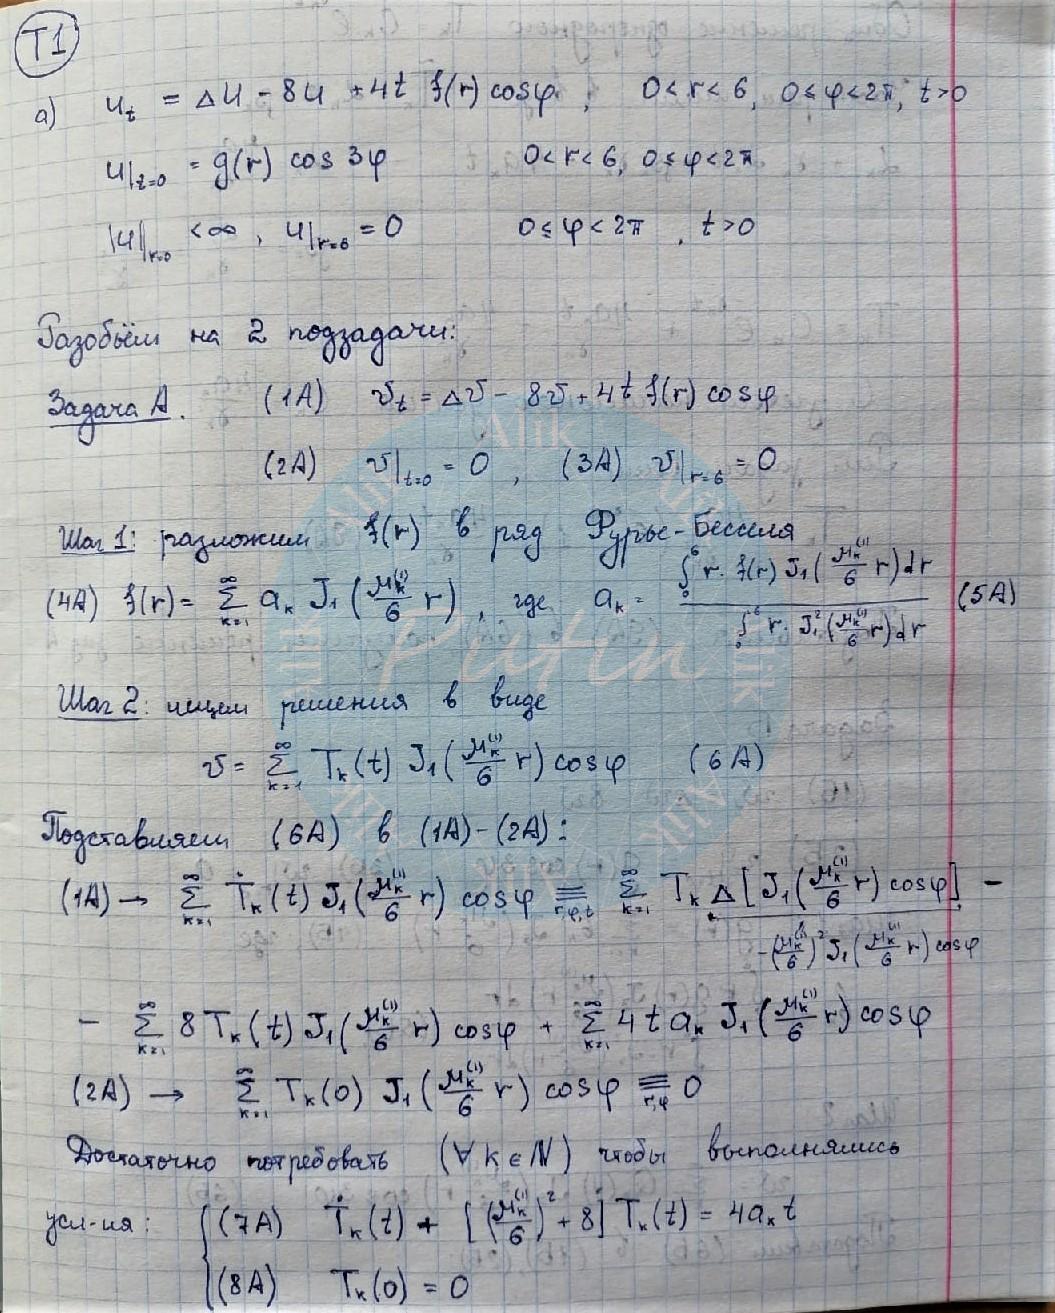 T1
а) u_t = Δu - 8u + 4t f(r) cosφ, 0<r<6, 0≤φ<2π, t>0
u|_{t=0} = g(r) cos 3φ 0<r<6, 0≤φ<2π
|u||_{r=0} < ∞, u|_{r=6} = 0 0≤φ<2π, t>0
Разобьём на 2 подзадачи:
Задача А. (1A) v_t = Δv - 8v + 4t f(r) cosφ
(2A) v|_{t=0} = 0, (3A) v|_{r=6} = 0
Шаг 1: разложим f(r) в ряд Фурье-Бесселя
(4A) f(r) = Σ_{k=1}^{∞} a_k J_1(μ_k^{(1)}/6 r), где a_k = ∫_0^6 r·f(r) J_1(μ_k^{(1)}/6 r)dr / ∫_0^6 r·J_1^2(μ_k^{(1)}/6 r)dr (5A)
Шаг 2: ищем решения в виде
v = Σ_{k=1}^{∞} T_k(t) J_1(μ_k^{(1)}/6 r) cosφ (6A)
Подставляем (6A) в (1A)-(2A):
(1A) → Σ_{k=1}^{∞} Ṫ_k(t) J_1(μ_k^{(1)}/6 r) cosφ ≡_{r,φ,t} Σ_{k=1}^{∞} T_k Δ[J_1(μ_k^{(1)}/6 r) cosφ] -
-(μ_k^{(1)}/6)^2 J_1(μ_k^{(1)}/6 r) cosφ
- Σ_{k=1}^{∞} 8 T_k(t) J_1(μ_k^{(1)}/6 r) cosφ + Σ_{k=1}^{∞} 4 t a_k J_1(μ_k^{(1)}/6 r) cosφ
(2A) → Σ_{k=1}^{∞} T_k(0) J_1(μ_k^{(1)}/6 r) cosφ ≡_{r,φ} 0
Достаточно потребовать (∀ k ∈ N) чтобы выполнялись
усл-ия: { (7A) Ṫ_k(t) + [(μ_k^{(1)}/6)^2 + 8] T_k(t) = 4a_k t
(8A) T_k(0) = 0
Alik
Alik
Alik
Alik
Alik
Alik
Alik
Putin